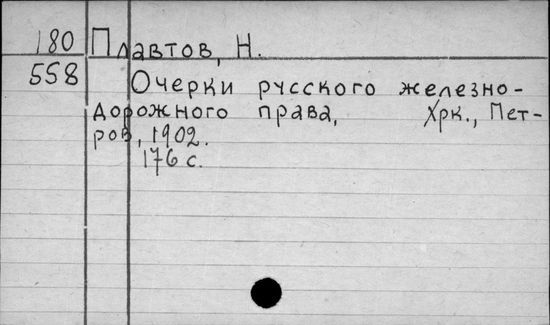 180 Плавтов, Н.
558 Очерки русского железно-
дорожного права, Хрк., Пет-
ров, 1902.
176 с.